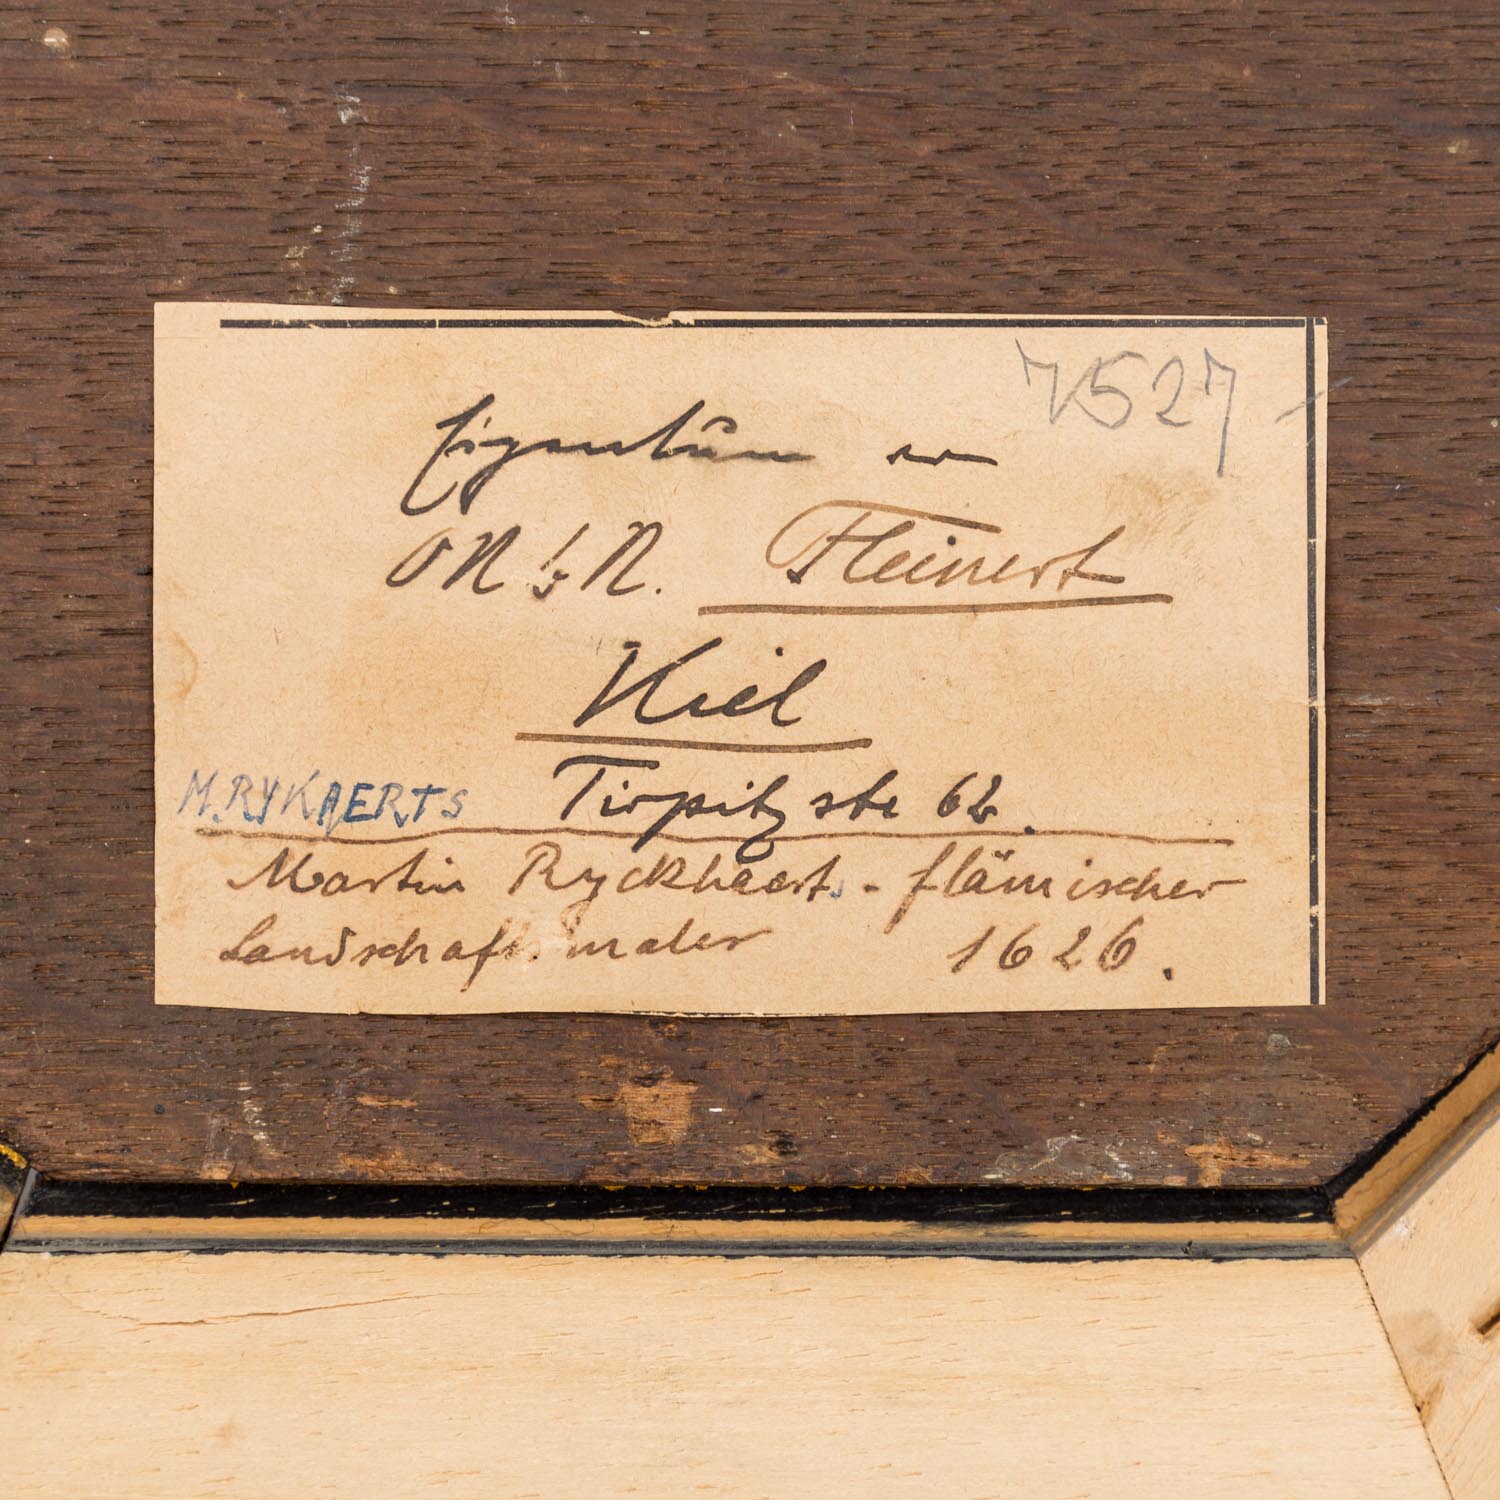 7527
Eigentum
Kiel
M. RYKAERTS Tirpitzstr 62.
Martin Ryckhaert. - flämischer
Landschafts maler 1626.